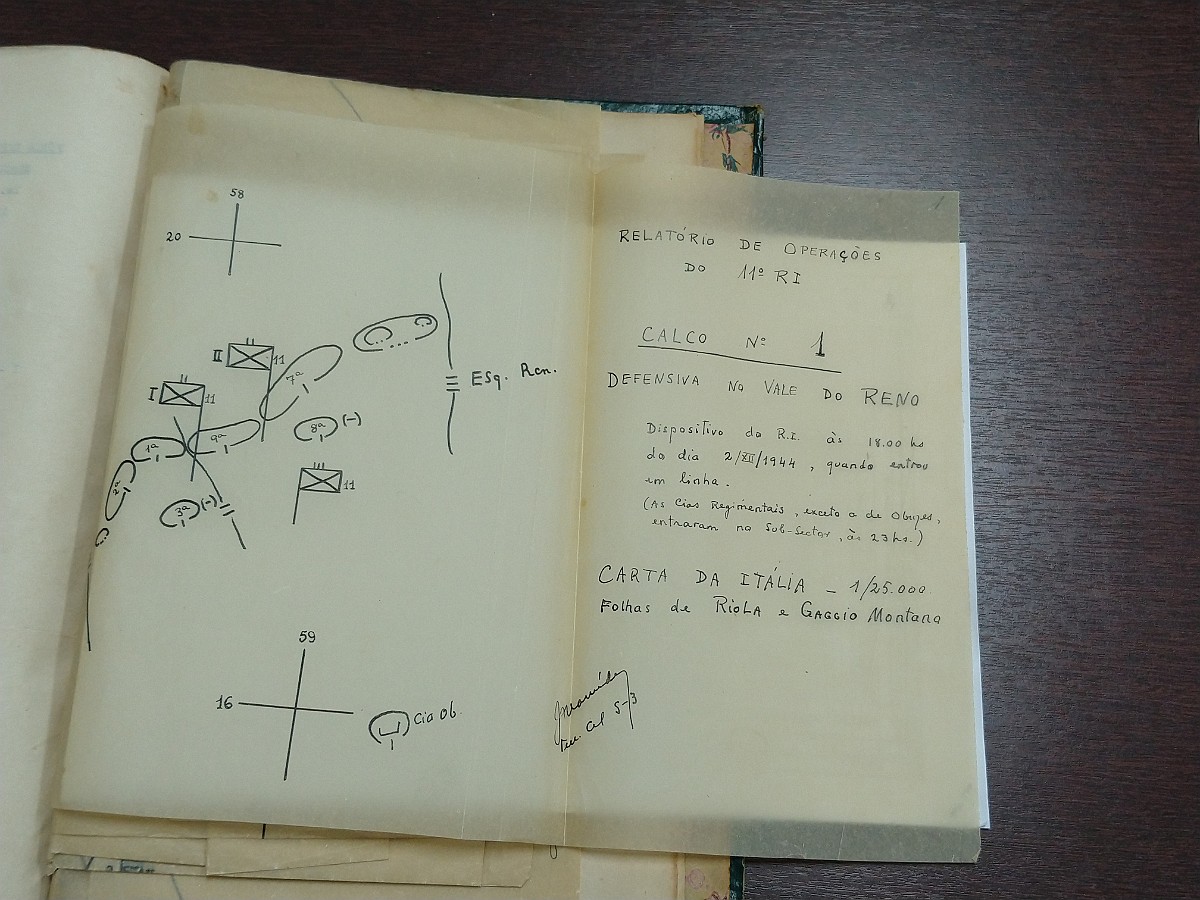 58
20
II
11
I
11
7ª
Esq. Rcn.
1ª
9ª
8ª (-)
2ª
3ª (-)
11
59
16
Cia Ob.
1
RELATÓRIO DE OPERAÇÕES
DO 11º RI
CALCO Nº 1
DEFENSIVA NO VALE DO RENO
Dispositivo do R.I. às 18.00 hs
do dia 2/XII/1944, quando entrou
em linha.
(As Cias Regimentais, exceto a de Obuzes,
entraram no Sub-Sector, às 23 hs.)
CARTA DA ITÁLIA - 1/25.000
Folhas de RIOLA e GAGGIO Montana
Ten. Cel S-3